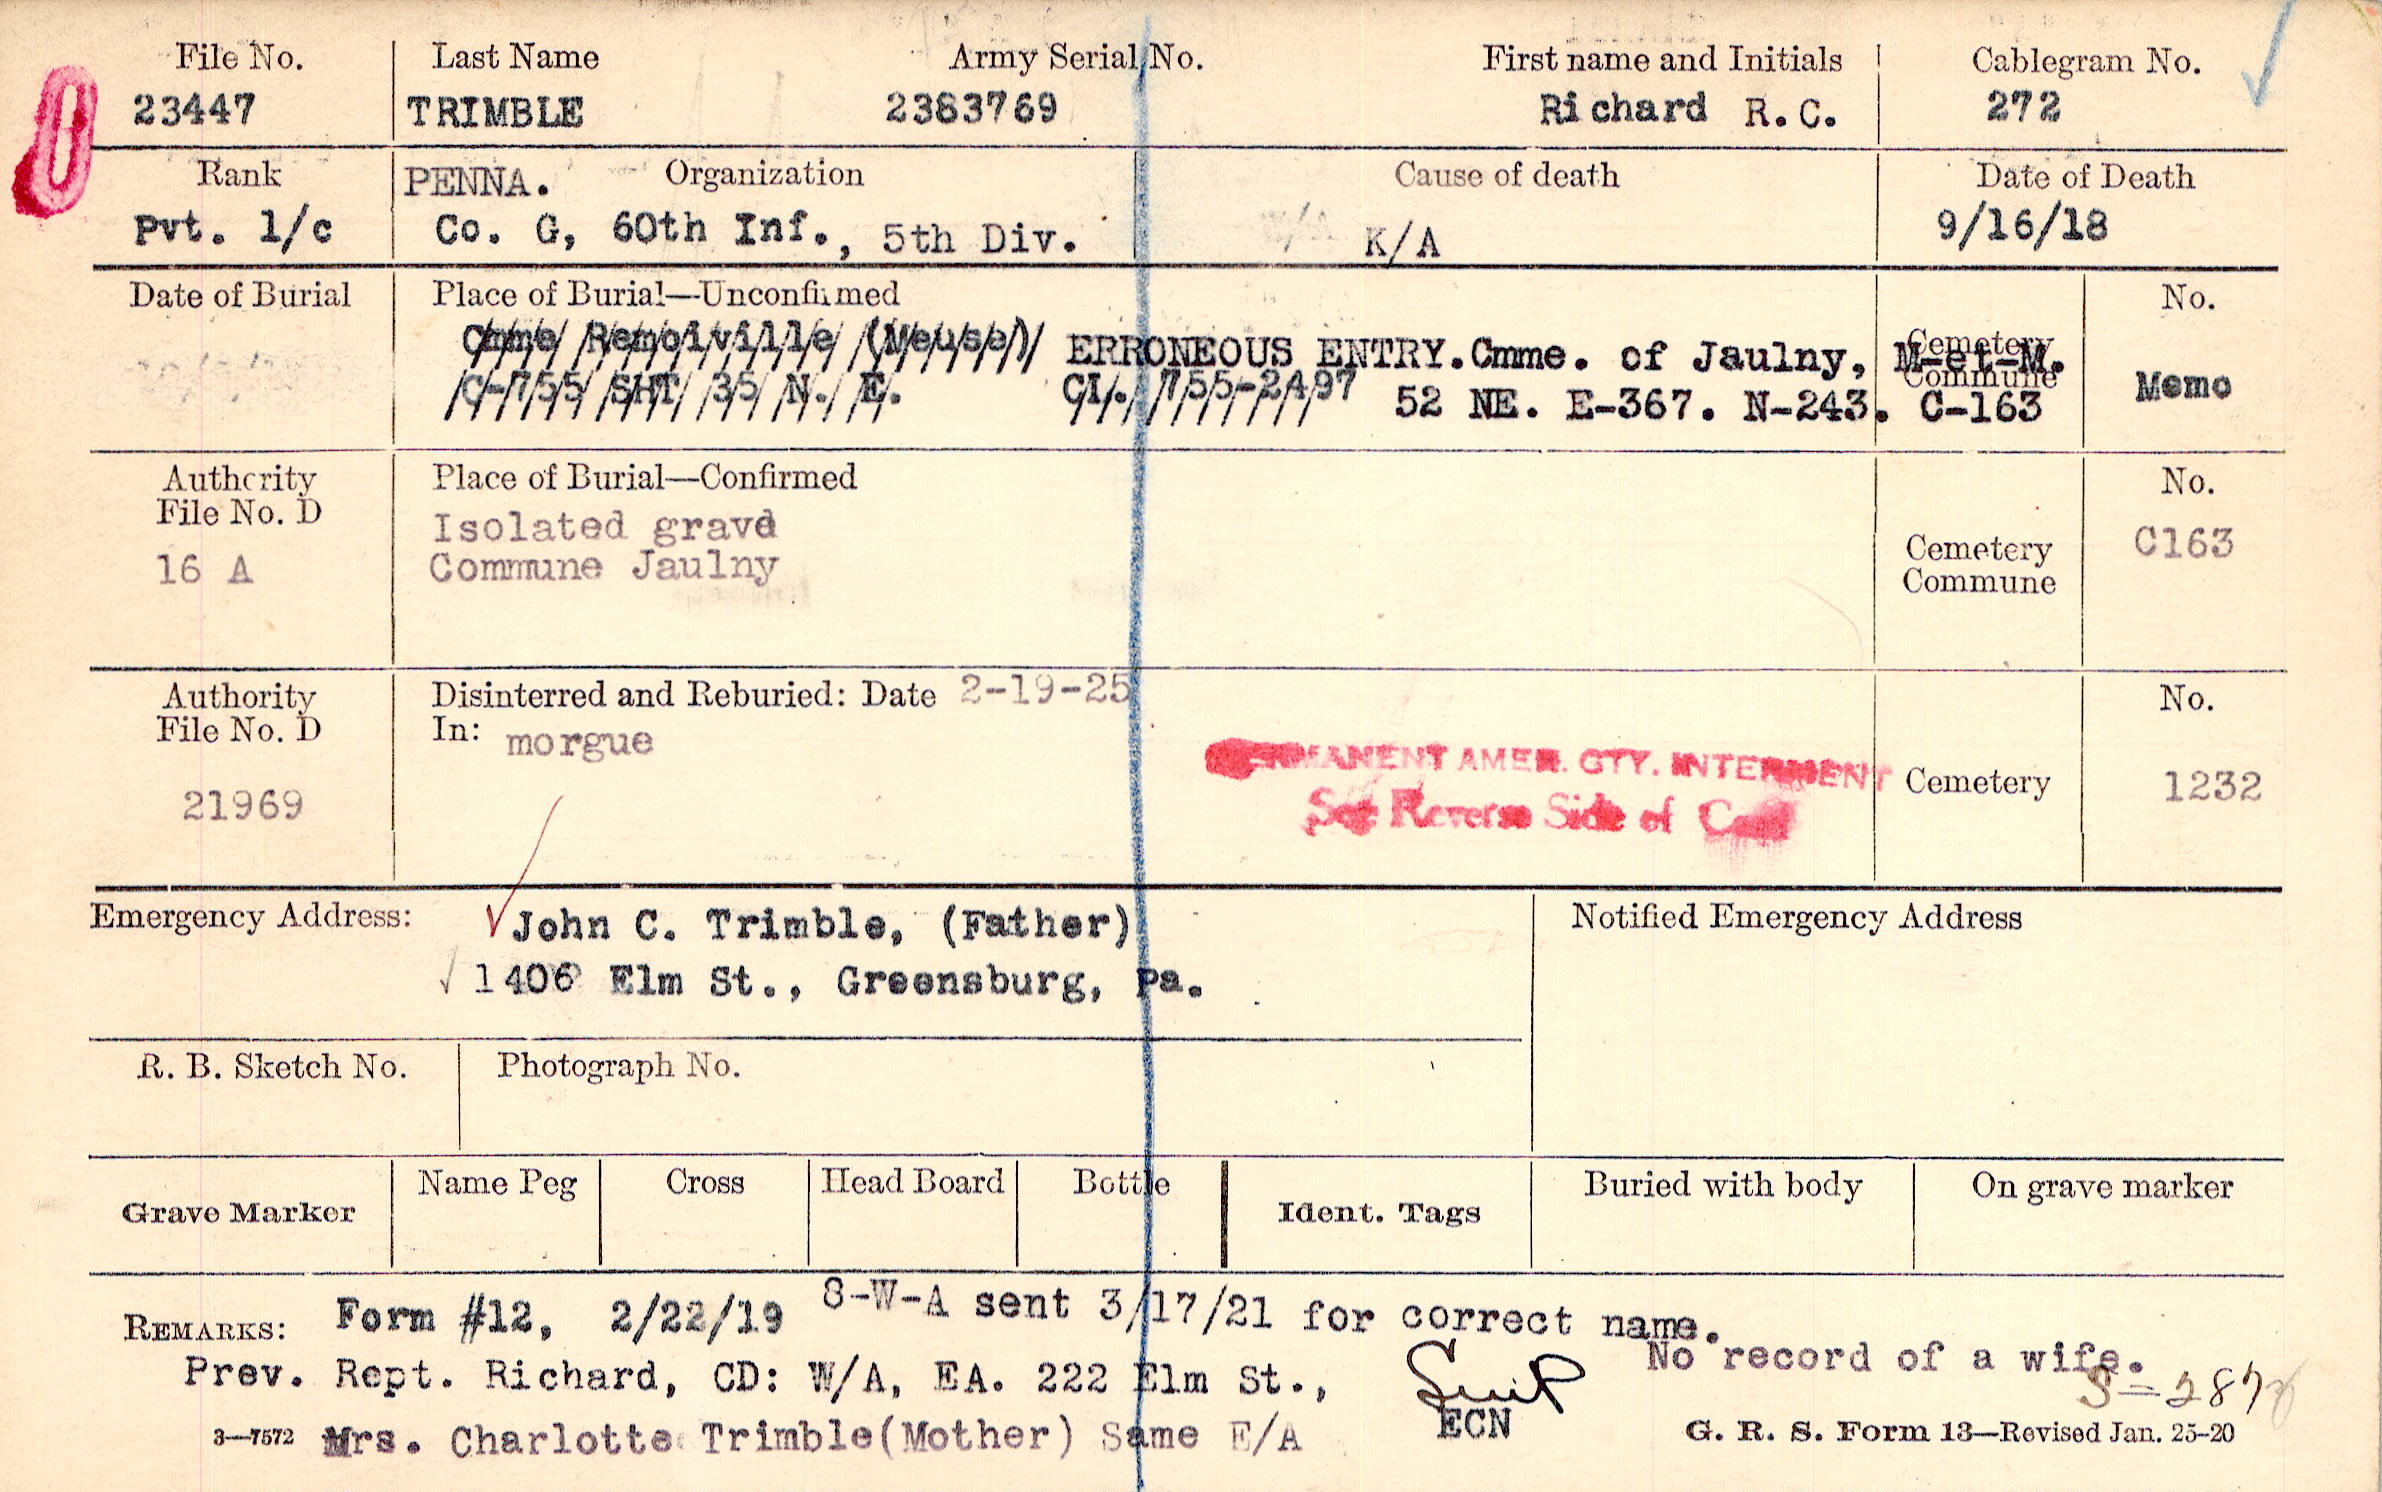 File No. Last Name Army Serial No. First name and Initials Cablegram No.
23447 TRIMBLE 2383769 Richard R.C. 272
Rank PENNA. Organization Cause of death Date of Death
Pvt. 1/c Co. G, 60th Inf., 5th Div. K/A 9/16/18
Date of Burial Place of Burial—Unconfirmed No.
Cmme Remoiville (Meuse) ERRONEOUS ENTRY. Cmme. of Jaulny, M-et-M. Cemetery Commune
C-755 SHT 35 N. E. CI. 755-2497 52 NE. E-367. N-243. C-163 Memo
Authority Place of Burial—Confirmed No.
File No. D Isolated grave C163
16 A Commune Jaulny Cemetery
Commune
Authority Disinterred and Reburied: Date 2-19-25 No.
File No. D In: morgue
PERMANENT AMER. CTY. INTERMENT Cemetery 1232
21969 See Reverse Side of Card
Emergency Address: John C. Trimble, (Father) Notified Emergency Address
1406 Elm St., Greensburg, Pa.
R. B. Sketch No. Photograph No.
Grave Marker Name Peg Cross Head Board Bottle Ident. Tags Buried with body On grave marker
REMARKS: Form #12, 2/22/19 8-W-A sent 3/17/21 for correct name.
No record of a wife.
Prev. Rept. Richard, CD: W/A, EA. 222 Elm St.,
ECN
3—7572 Mrs. Charlotte Trimble(Mother) Same E/A G. R. S. Form 13—Revised Jan. 25-20